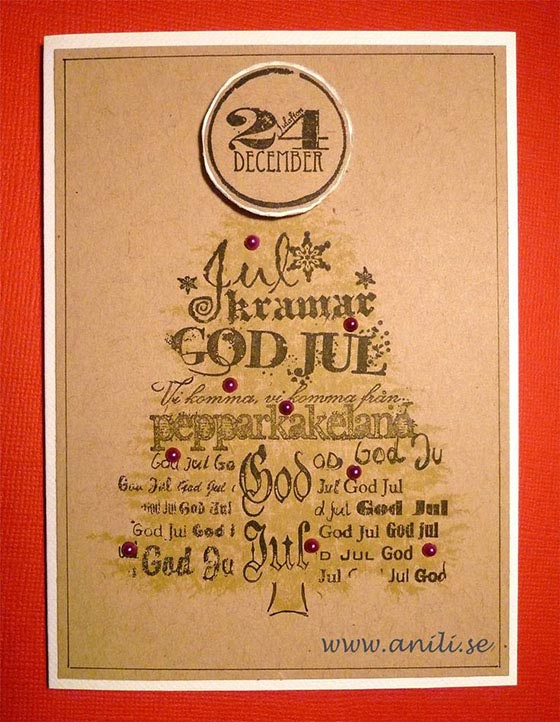 24
Julafton
DECEMBER
Jul
kramar
GOD JUL
Vi komma, vi komma från...
pepparkakeland
God Jul Go God OD God Ju
God Jul God Jul Jul God Jul
God Jul d Jul God Jul
God Jul God J Jul God Jul God Jul
God Ju D JUL God
Jul Jul God
www.anili.se